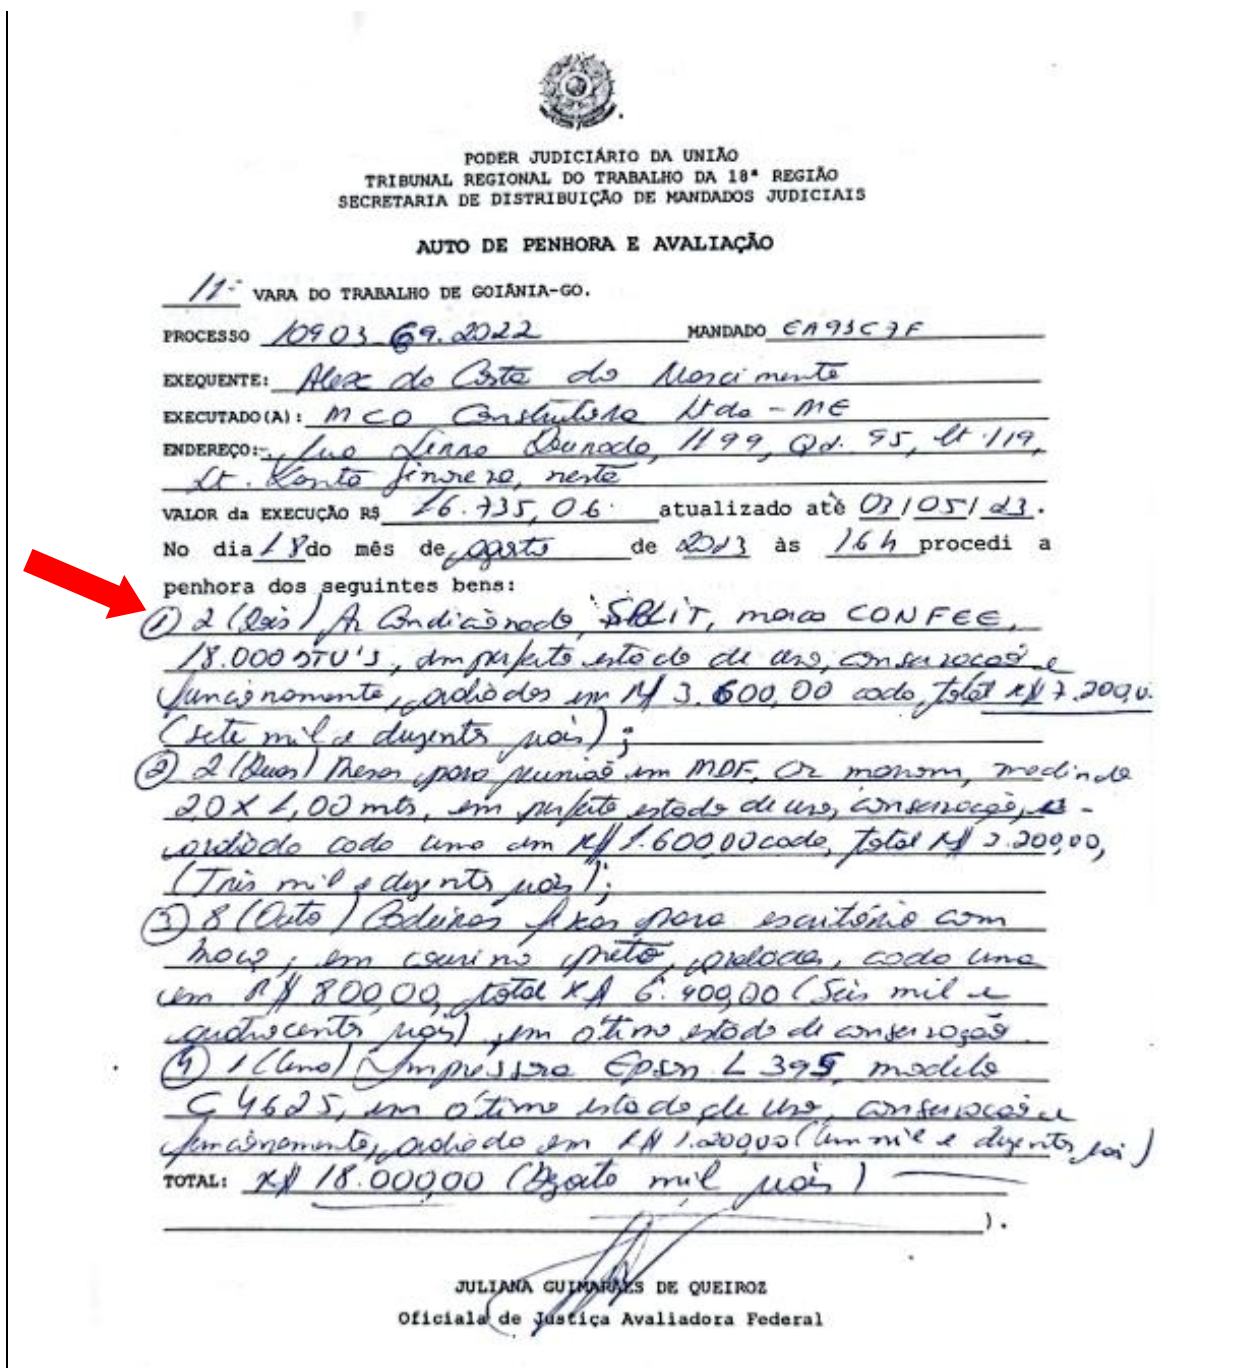 PODER JUDICIÁRIO DA UNIÃO
TRIBUNAL REGIONAL DO TRABALHO DA 18ª REGIÃO
SECRETARIA DE DISTRIBUIÇÃO DE MANDADOS JUDICIAIS
AUTO DE PENHORA E AVALIAÇÃO
11ª VARA DO TRABALHO DE GOIÂNIA-GO.
PROCESSO 10903 69.2022 MANDADO EA93C7F
EXEQUENTE: Alex da Costa do Nascimento
EXECUTADO(A): MCO Construtora Ltda - ME
ENDEREÇO: Rua 1199, Qd. 95, Lt 119,
St. Santa Genoveva, nesta
VALOR da EXECUÇÃO R$ 16.735,06 atualizado até 03/05/23.
No dia 18 do mês de agosto de 2023 às 16h procedi a
penhora dos seguintes bens:
① 2 (Dois) Ar Condicionado, SPLIT, marca CONFEE,
18.000 BTU'S, em perfeito estado de uso, conservação e
funcionamento, avaliados em R$ 3.600,00 cada, total R$ 7.200,0
(sete mil e duzentos reais);
② 2 (Duas) Mesas para reunião em MDF, cor marrom, medindo
2,0 X 1,00 mts, em perfeito estado de uso, conservação,
avaliada cada uma em R$ 1.600,00 cada, total R$ 3.200,00,
(Três mil e duzentos reais);
③ 8 (Oito) Cadeiras fixas para escritório com
em courino preto, avaliadas, cada uma
em R$ 800,00, total R$ 6.400,00 (Seis mil e
quatrocentos reais), em ótimo estado de conservação.
④ 1 (Uma) Impressora Epson L 395, modelo
C462S, em ótimo estado de uso, conservação e
funcionamento, avaliado em R$ 1.200,00 (um mil e duzentos reais)
TOTAL: R$ 18.000,00 (Dezoito mil reais)
).
JULIANA GUIMARÃES DE QUEIROZ
Oficiala de Justiça Avaliadora Federal